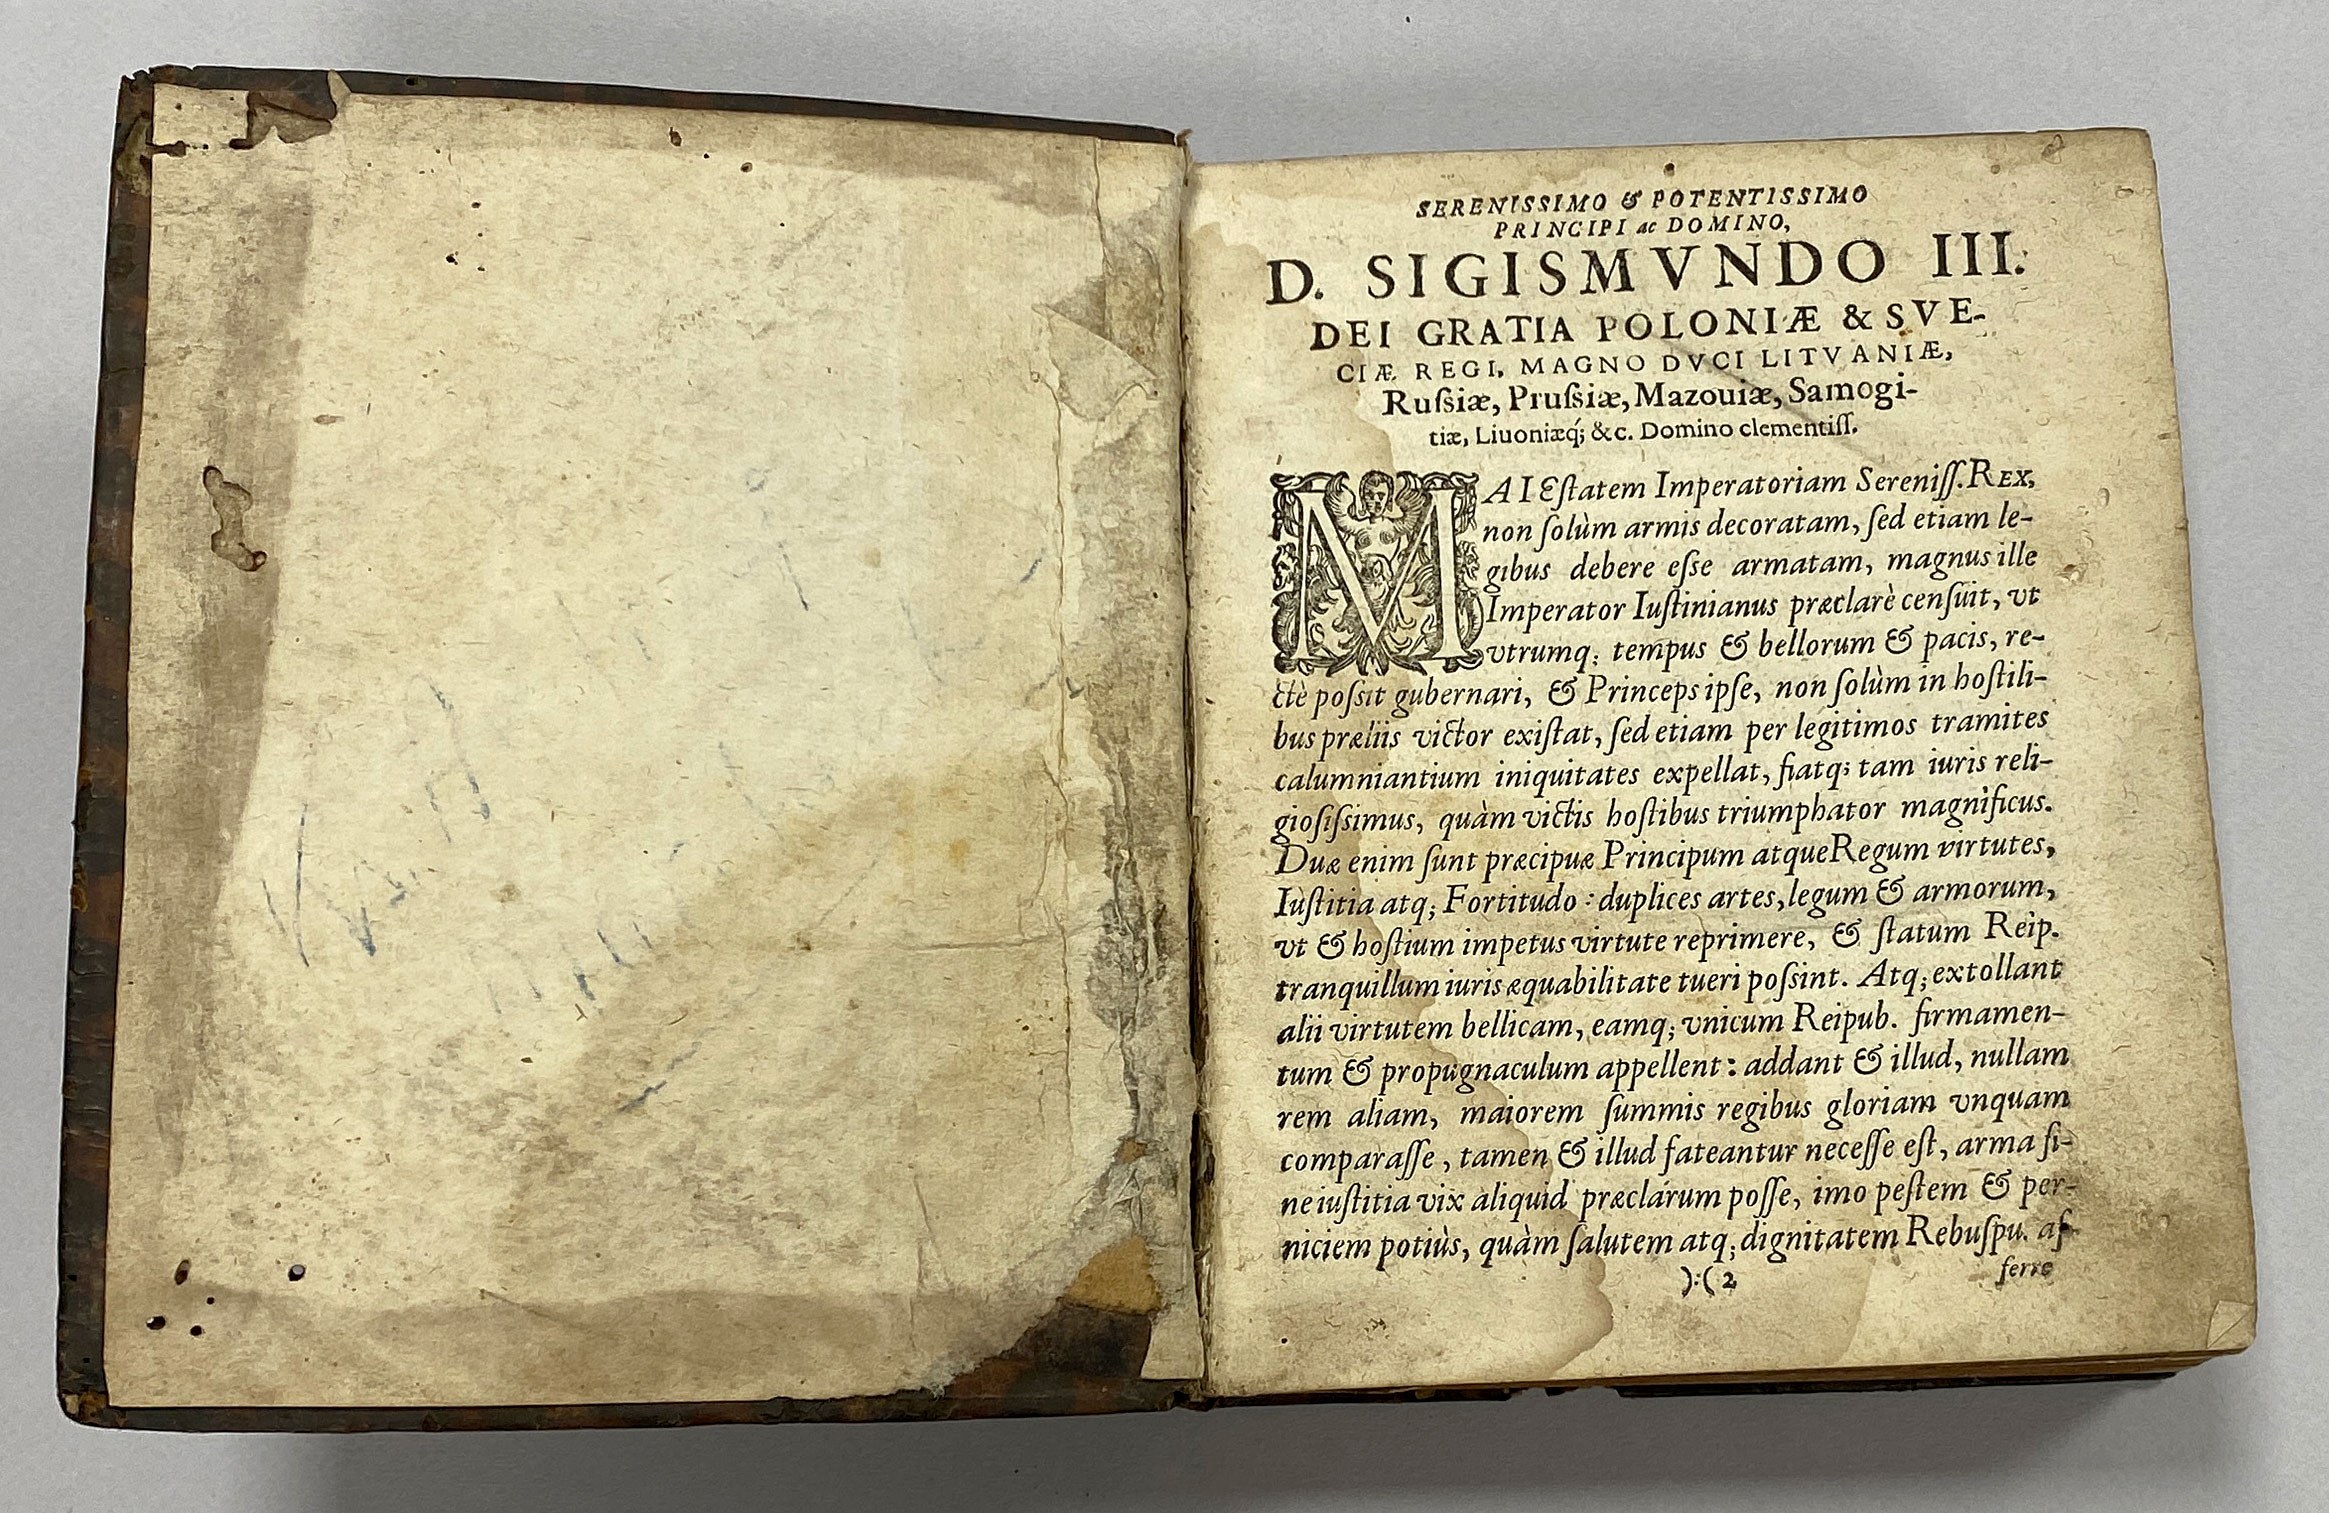 SERENISSIMO & POTENTISSIMO
PRINCIPI ac DOMINO,
D. SIGISMVNDO III.
DEI GRATIA POLONIÆ & SVE-
CIÆ REGI, MAGNO DVCI LITVANIÆ,
Ruſsiæ, Pruſsiæ, Mazouiæ, Samogi-
tiæ, Liuoniæq́; &c. Domino clementiſſ.
MAIEſtatem Imperatoriam Sereniſſ. REX,
non ſolùm armis decoratam, ſed etiam le-
gibus debere eſse armatam, magnus ille
Imperator Iuſtinianus præclarè cenſuit, vt
vtrumq; tempus & bellorum & pacis, re-
ctè poſsit gubernari, & Princeps ipſe, non ſolùm in hoſtili-
bus præliis victor exiſtat, ſed etiam per legitimos tramites
calumniantium iniquitates expellat, fiatq; tam iuris reli-
gioſiſsimus, quàm victis hoſtibus triumphator magnificus.
Duæ enim ſunt præcipuæ Principum atque Regum virtutes,
Iuſtitia atq; Fortitudo: duplices artes, legum & armorum,
vt & hoſtium impetus virtute reprimere, & ſtatum Reip.
tranquillum iuris æquabilitate tueri poſsint. Atq; extollant
alii virtutem bellicam, eamq; vnicum Reipub. firmamen-
tum & propugnaculum appellent: addant & illud, nullam
rem aliam, maiorem ſummis regibus gloriam vnquam
comparaſſe, tamen & illud fateantur neceſſe eſt, arma ſi-
ne iuſtitia vix aliquid præclárum poſſe, imo peſtem & per-
niciem potiùs, quàm ſalutem atq; dignitatem Rebuſpu. af-
):( 2
ferre